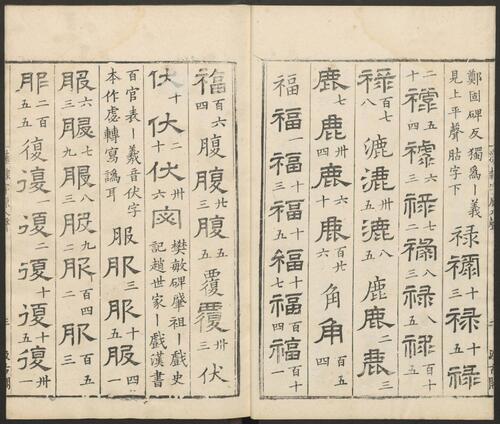 鄭固碑反獨爲丨義
見上平聲貼字下
祿 禄 十 祿 十 祿
二十 祿 五四 祿 六三 祿 二二 祿 八 祿 五 祿 百十五
祿 百七八 漉 漉 卅五 漉 八 鹿 鹿 二 鹿 三
鹿 七四 鹿 卅四 鹿 十六 鹿 百廿六 角 角 百五四
福 福 一四 福 三 福 十五 福 十七 福 百四 福 百十
福 百六四 腹 腹 卅五 覆 覆 卅 伏
伏 十 伏 二十 伏 卅六 宓
樊敏碑肇祖丨戲史
記趙世家丨戲漢書
百官表丨羲音伏字
本作虙轉寫譌耳
服 服 三 服 十四 服 一
服 六三 服 七九 服 八三 服 九二 服 百四二 服 百五三
服 二百五五 復 復 一 復 二 復 十五 復 卅一